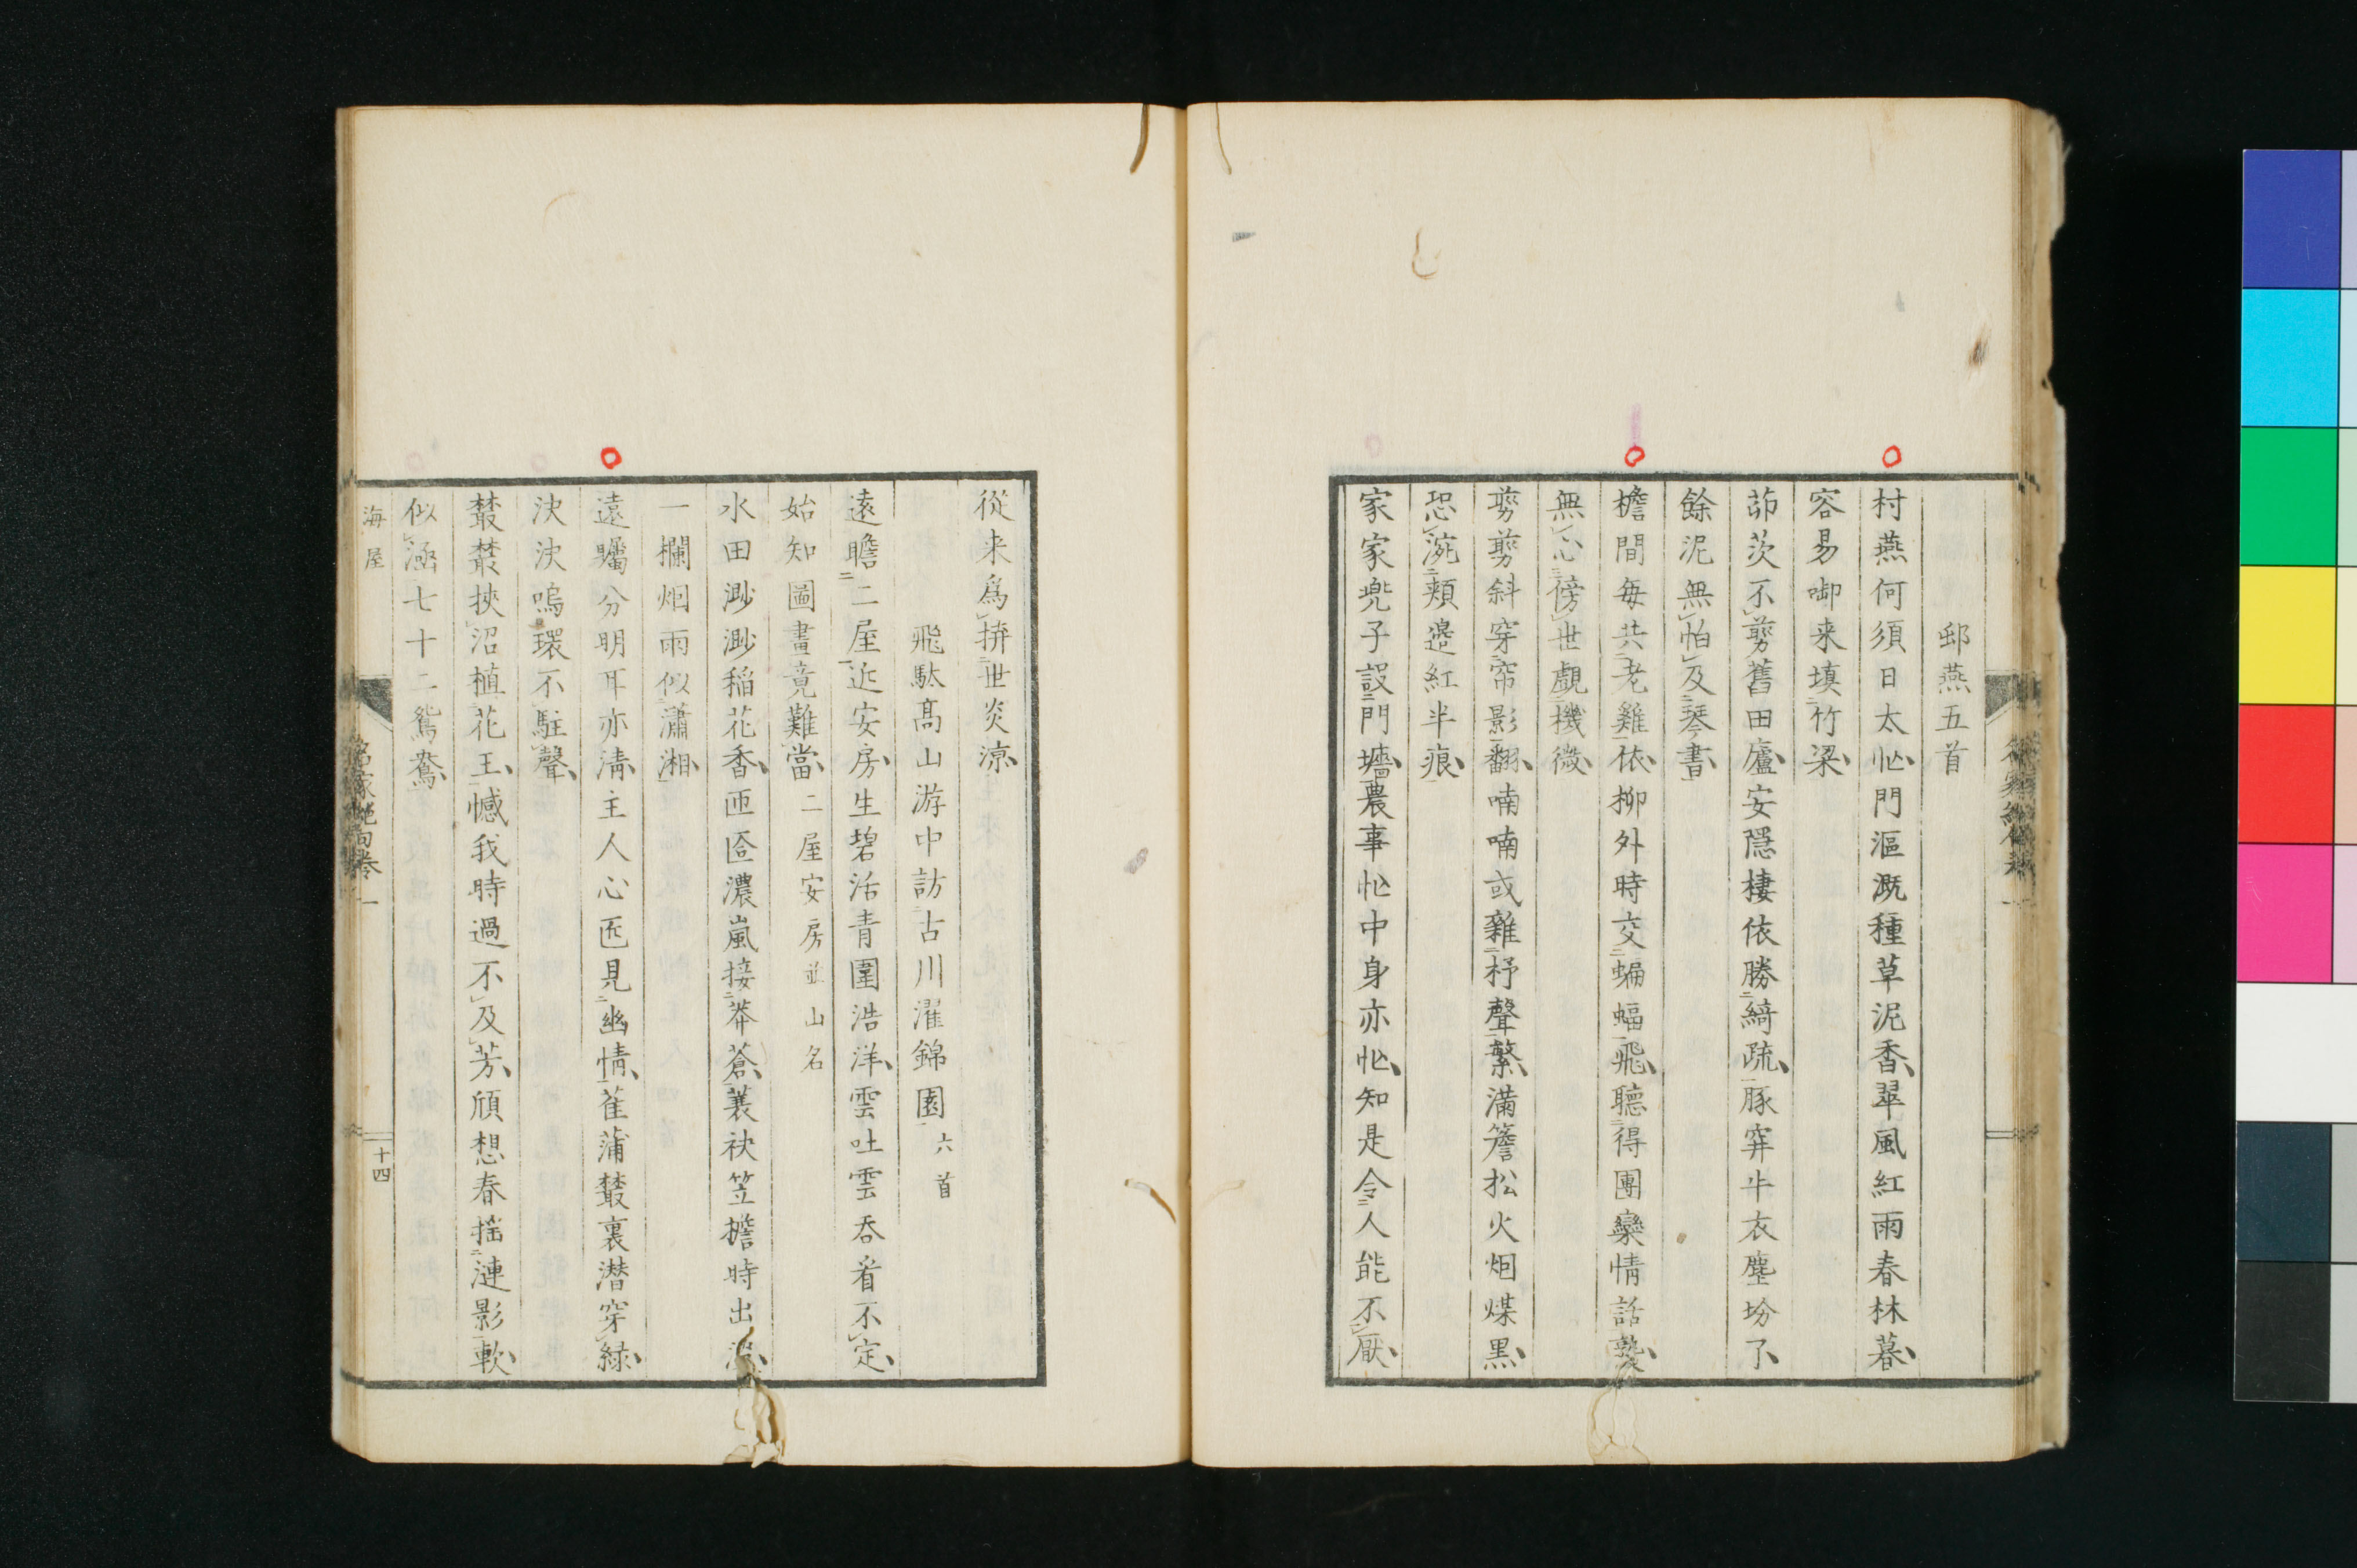 邨燕五首
村燕何須日太忙門漚溉種草泥香翠風紅雨春林暮
容易啣来填竹梁
茆茨不剪舊田廬安隱棲依勝綺疏豚穽牛衣塵坋了
餘泥無怕及琴書
檐間毎共老雞依柳外時交蝙蝠飛聽得團欒情話熟
無心傍世覷機微
剪剪斜穿帘影翻喃喃或雜杼聲繁滿簷松火烟煤黒
恐涴頬邉紅半痕
家家兠子設門墻農事忙中身亦忙知是令人能不厭
從来爲拚世炎凉
飛駄髙山游中訪古川濯錦園六首
遠瞻二屋近安房生碧活青圍浩洋雲吐雲呑看不定
始知圖畫竟難當二屋安房並山名
水田渺渺稲花香匝匼濃嵐接莽蒼蓑袂笠檐時出
一欄烟雨似瀟湘
遠矚分明耳亦清主人心匠見幽情萑蒲叢裏潜穿緑
決決鳴環不駐聲
叢叢挾沼植花王憾我時過不及芳頎想春揺漣影軟
似涵七十二鴛鴦
海屋
名家絶句巻一
十四